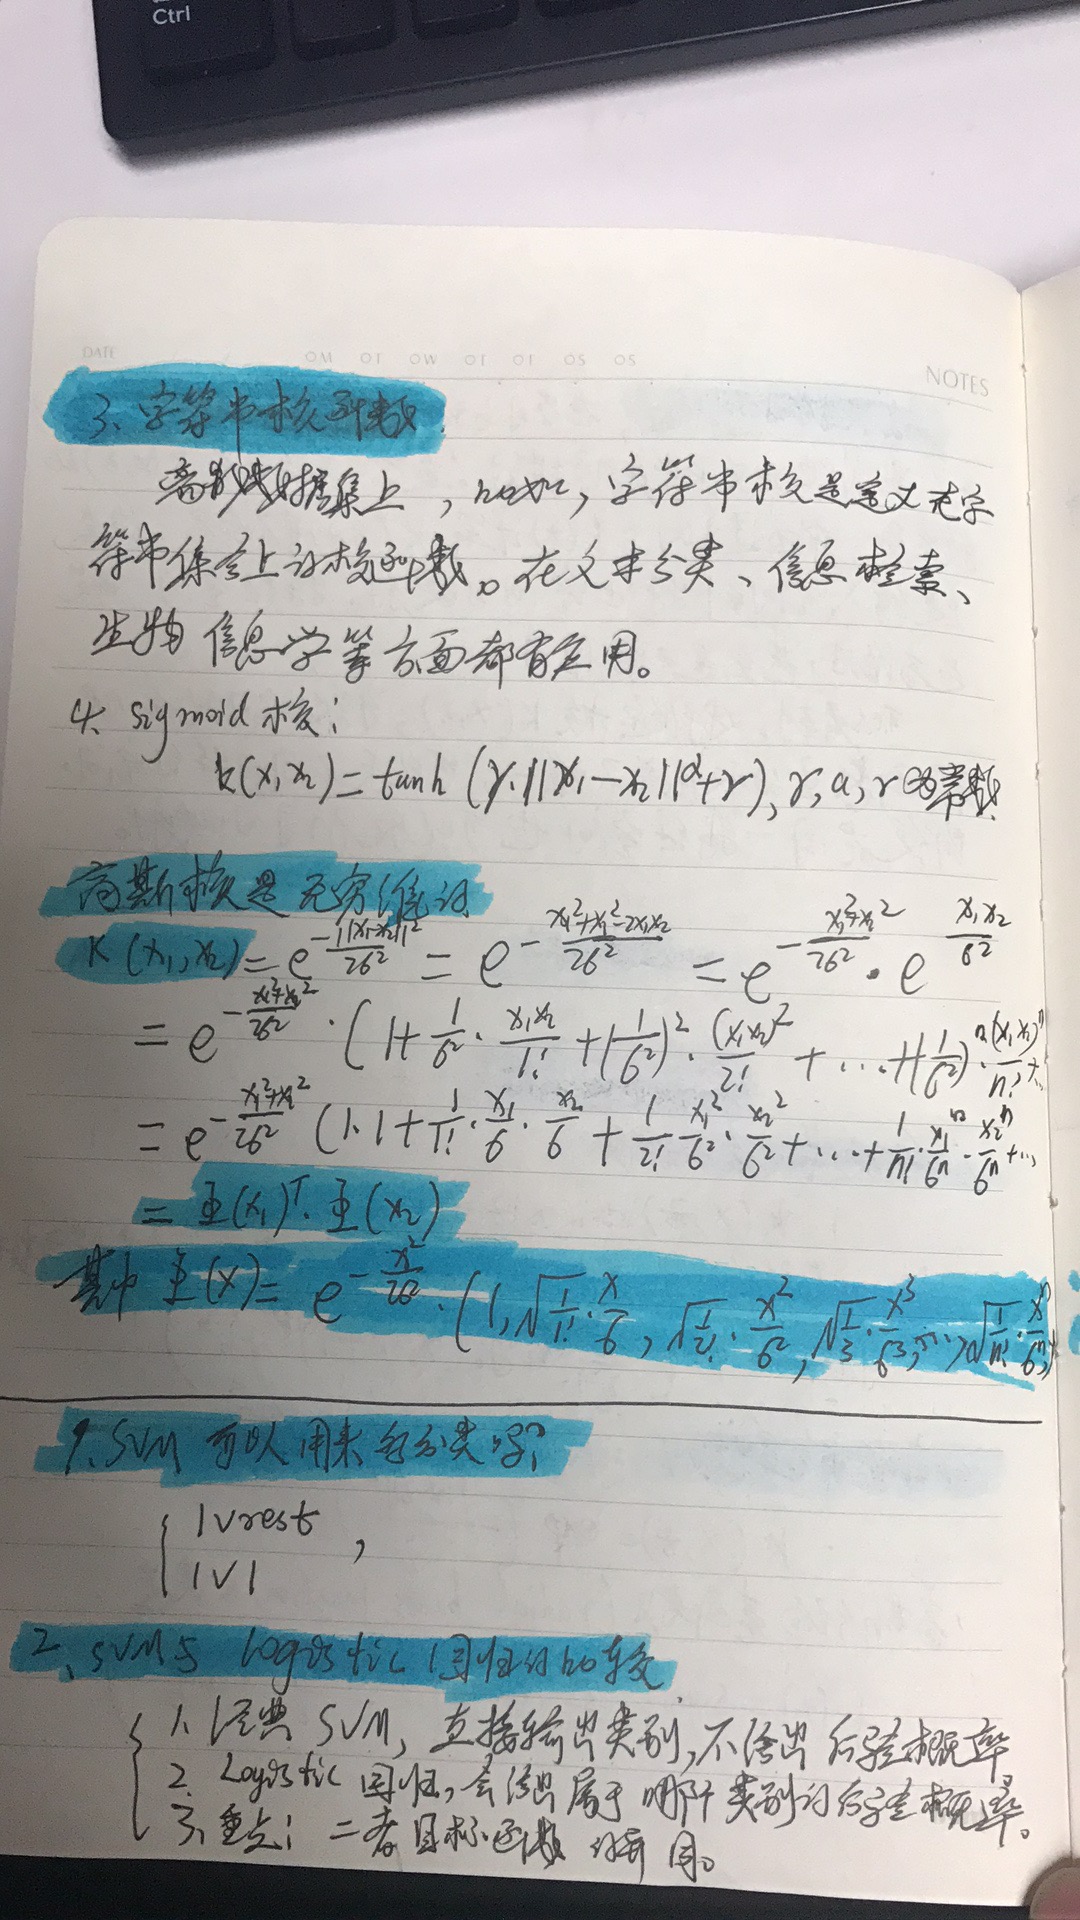 Ctrl
DATE
NOTES
3、字符串核函数
离散数据集上，比如，字符串核是定义在字
符串集合上的核函数。在文本分类、信息检索、
生物信息学等方面都有应用。
4、sigmoid核：
k(x₁,x₂)=tanh(γ·||x₁-x₂||ᵅ+r), γ,a,r为常数
高斯核是无穷维的
K(x₁,x₂)=e^{-||x₁-x₂||²/2σ²}=e^{-(x₁²+x₂²-2x₁x₂)/2σ²}=e^{-(x₁²+x₂²)/2σ²}·e^{x₁x₂/σ²}
=e^{-(x₁²+x₂²)/2σ²}·(1+1/σ²·x₁x₂/1!+(1/σ²)²·(x₁x₂)²/2!+...+(1/σ²)ⁿ·(x₁x₂)ⁿ/n!+...
=e^{-(x₁²+x₂²)/2σ²}(1·1+1/1!·x₁/σ·x₂/σ+1/2!·x₁²/σ²·x₂²/σ²+...+1/n!·x₁ⁿ/σⁿ·x₂ⁿ/σⁿ+...
=Φ(x₁)ᵀ·Φ(x₂)
其中Φ(x)=e^{-x²/2σ²}·(1,√(1/1!)·x/σ,√(1/2!)·x²/σ²,√(1/3)·x³/σ³,...,√(1/n!)·xⁿ/σⁿ,
1、SVM可以用来多分类吗？
{1vrest
1v1，
2、SVM与Logistic回归的比较
{1、经典SVM，直接输出类别，不给出后验概率
2、Logistic回归，会给出属于哪个类别的后验概率。
3、重点：二者目标函数的异同。